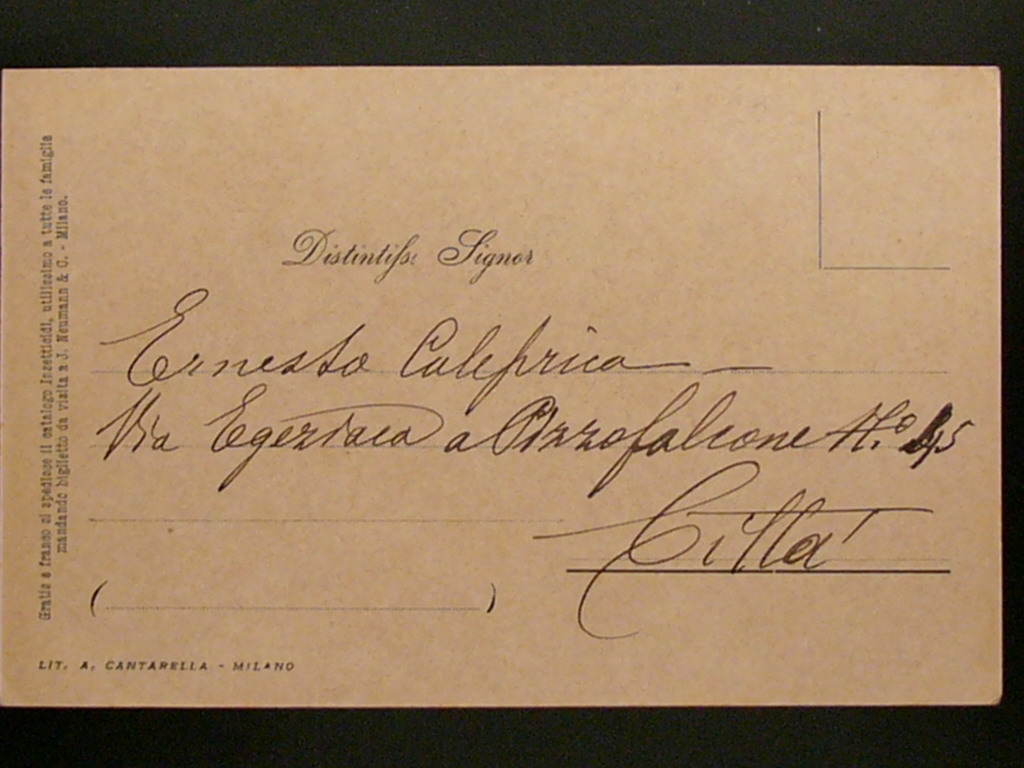 Gratis e franco si spedisce il catalogo Insetticidi, utilissimo a tutte le famiglie
mandando biglietto da visita a J. Neumann & C. - Milano.
Distintiss: Signor
Ernesto Caleprico
Via Egeziaca a Pizzofalcone N.o
Città
( )
LIT. A. CANTARELLA - MILANO